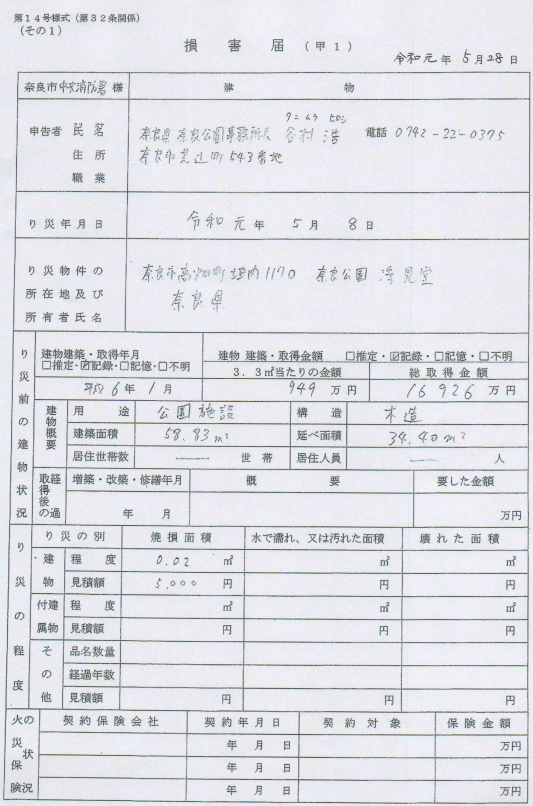 第14号様式（第32条関係）
（その1）
損害届（甲1）
令和元年 5月28日
奈良市中央消防署様 建物
タニムラ ヒロシ
申告者 氏名 奈良県 奈良公園事務所長 谷村 浩 電話 0742-22-0375
住所 奈良市芝辻町543番地
職業
り災年月日 令和元年 5月 8日
り災物件の 奈良市高畑町 1170 奈良公園 浮見堂
所在地及び 奈良県
所有者氏名
り災前の建物状況
建物建築・取得年月 建物 建築・取得金額 □推定・☑記録・□記憶・□不明
□推定・☑記録・□記憶・□不明 3.3㎡当たりの金額 総取得金額
平成 6年 1月 949 万円 16926 万円
建物概要 用途 公園施設 構造 木造
建築面積 58.83㎡ 延べ面積 34.40㎡
居住世帯数 ― 世帯 居住人員 ― 人
取得後の経過 増築・改築・修繕年月 概要 要した金額
年 月 万円
り災の程度
り災の別 焼損面積 水で濡れ、又は汚れた面積 壊れた面積
建物 程度 0.02 ㎡ ㎡ ㎡
見積額 5,000 円 円 円
付建属物 程度 ㎡ ㎡ ㎡
見積額 円 円 円
その他 品名数量
経過年数
見積額 円 円 円
火災保険の状況 契約保険会社 契約年月日 契約対象 保険金額
年 月 日 万円
年 月 日 万円
年 月 日 万円